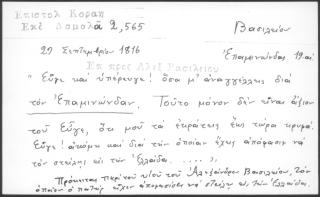 Επιστολ Κοραη
Επέ Δαμαλᾶ 2,565
Βασιλείου
29 Σεπτεμβρίου 1816
Ἐπαμεινώνδας
Επ προς Αλεξ Βασιλειου
" Εὖγε καὶ ὑπέρευγε! ὅσα μ' ἀναγγέλλεις διὰ
τὸν Ἐπαμινώνδαν. Τοῦτο μόνον δὲν εἶναι ἄξιον
τοῦ Εὖγε, ὅτι μοῦ τὰ ἐκράτεις ἕως τώρα κρυμμένα
Εὖγε! ἀκόμη καὶ διὰ τὴν ὁποίαν ἔχεις ἀπόφασιν νὰ
τὸν στείλῃς εἰς τὴν Ἑλλάδα. . . . . ,
Πρόκειται περὶ τοῦ υἱοῦ τοῦ Ἀλεξάνδρου Βασιλείου, τὸν
ὁποῖον ὁ πατὴρ εἶχεν ἀποφασίσει νὰ στείλῃ εἰς τὴν Ἑλλάδα.